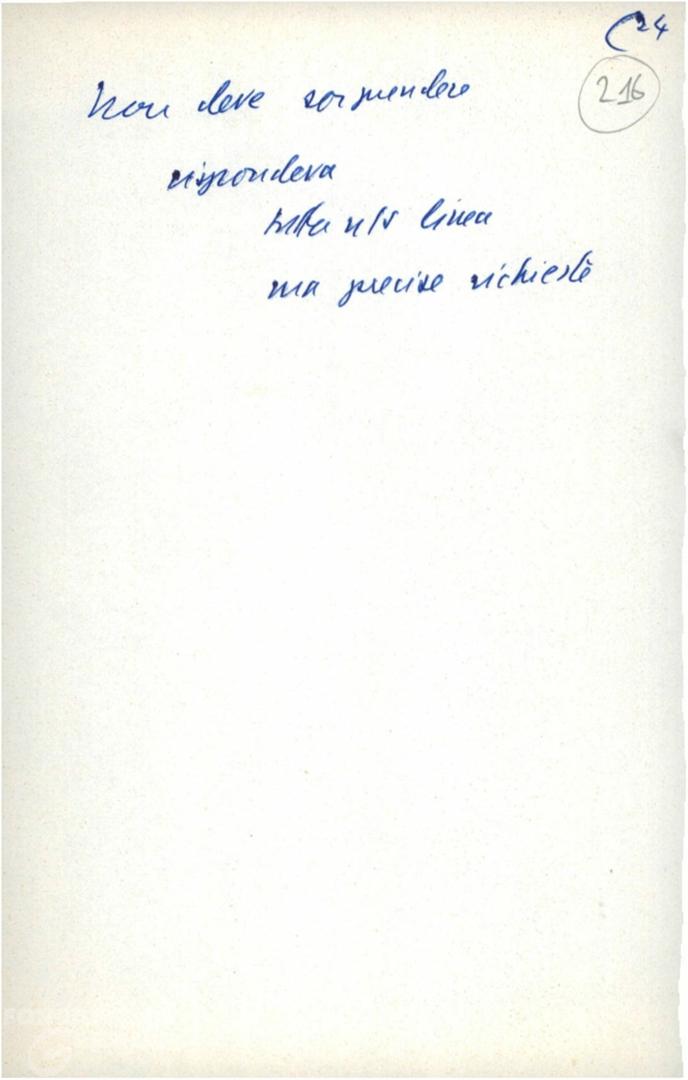 24
216
Non deve sorprendere
rispondeva
tutta n/s linea
ma precise richieste